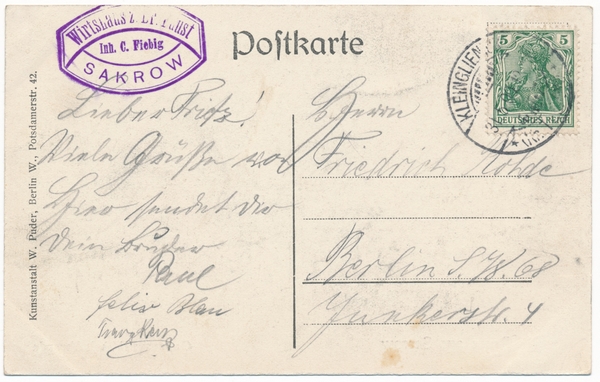 Wirtshaus z. Dr. Faust
Inh. C. Fiebig
SAKROW
Postkarte
5 5
DEUTSCHES REICH
KLEINGLIEN
Lieber Fritz!
Viele Grüße von
Hier sendet dir
dein Bruder
Paul
Felix Blau
Herrn
Friedrich Rohde
Berlin S.W. 68
Junkerstr. 4
Kunstanstalt W. Puder, Berlin W., Potsdamerstr. 42.